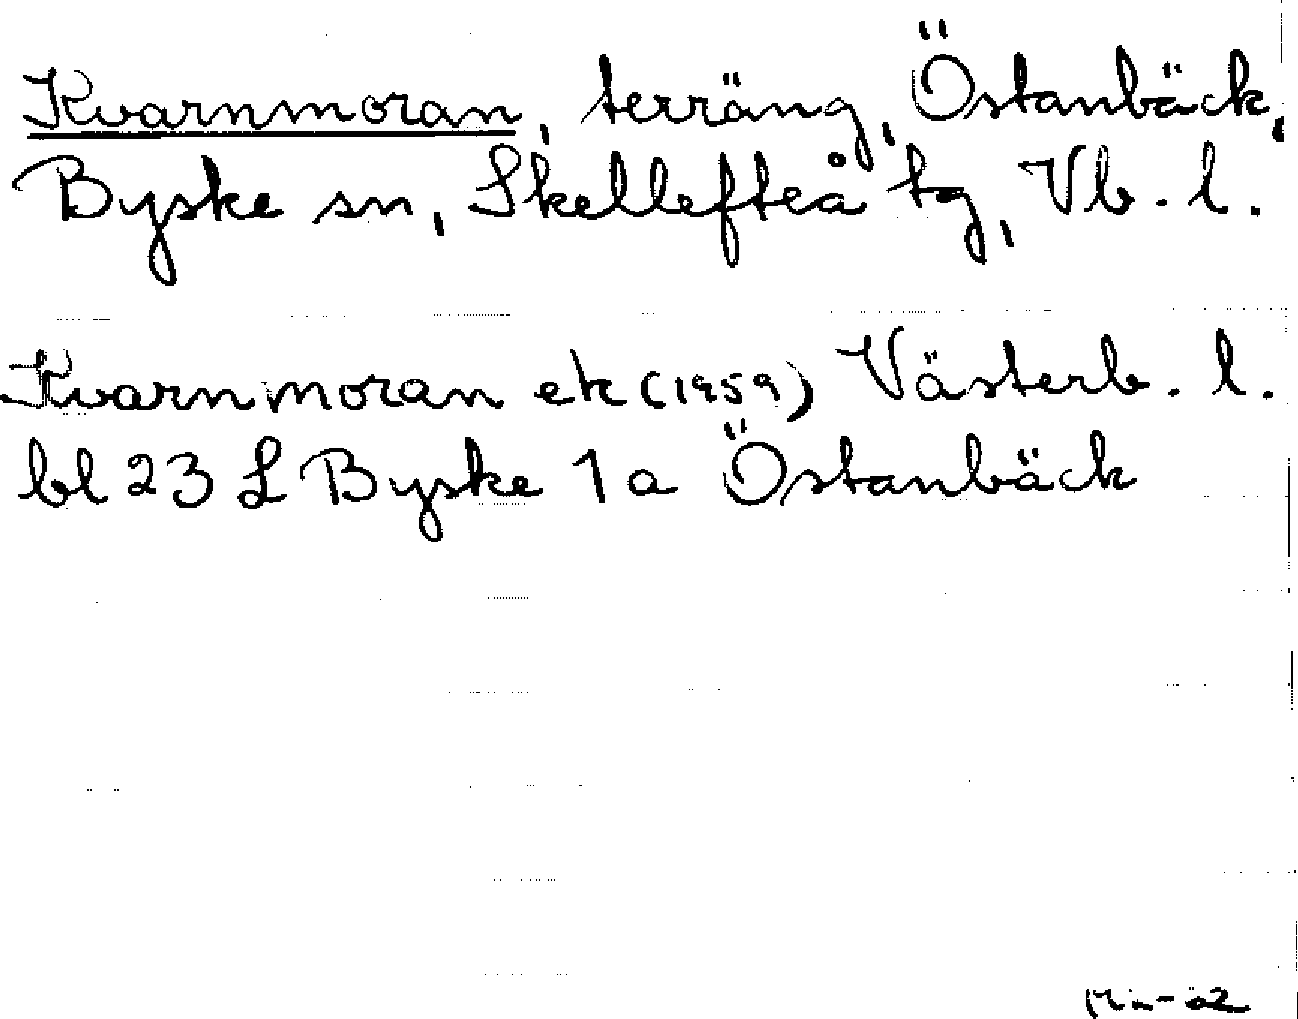 Kvarnmoran, terräng, Östanbäck,
Byske sn, Skellefteå tg, Vb. l.
Kvarnmoran ek (1959) Västerb. l.
bl 23 L Byske 1a Östanbäck